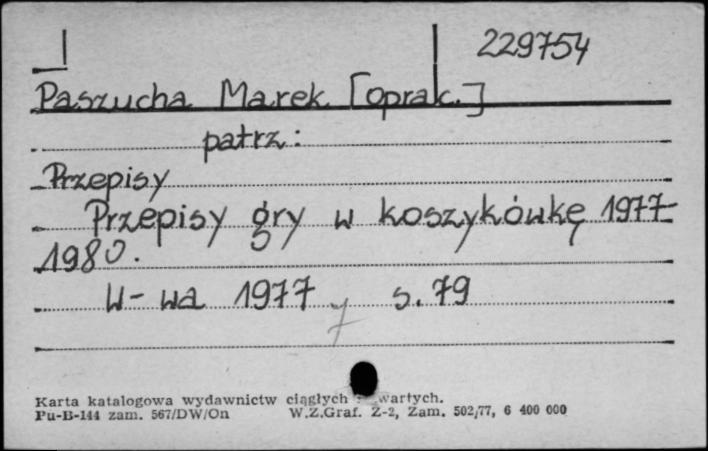 229754
Paszucha Marek [oprac.]
patrz:
Przepisy
Przepisy gry w koszykówkę 1977-
1980.
W-wa 1977, s. 79
Karta katalogowa wydawnictw ciągłych i zwartych.
Pu-B-144 zam. 567/DW/On W.Z.Graf. Z-2, Zam. 502/77, 6 400 000